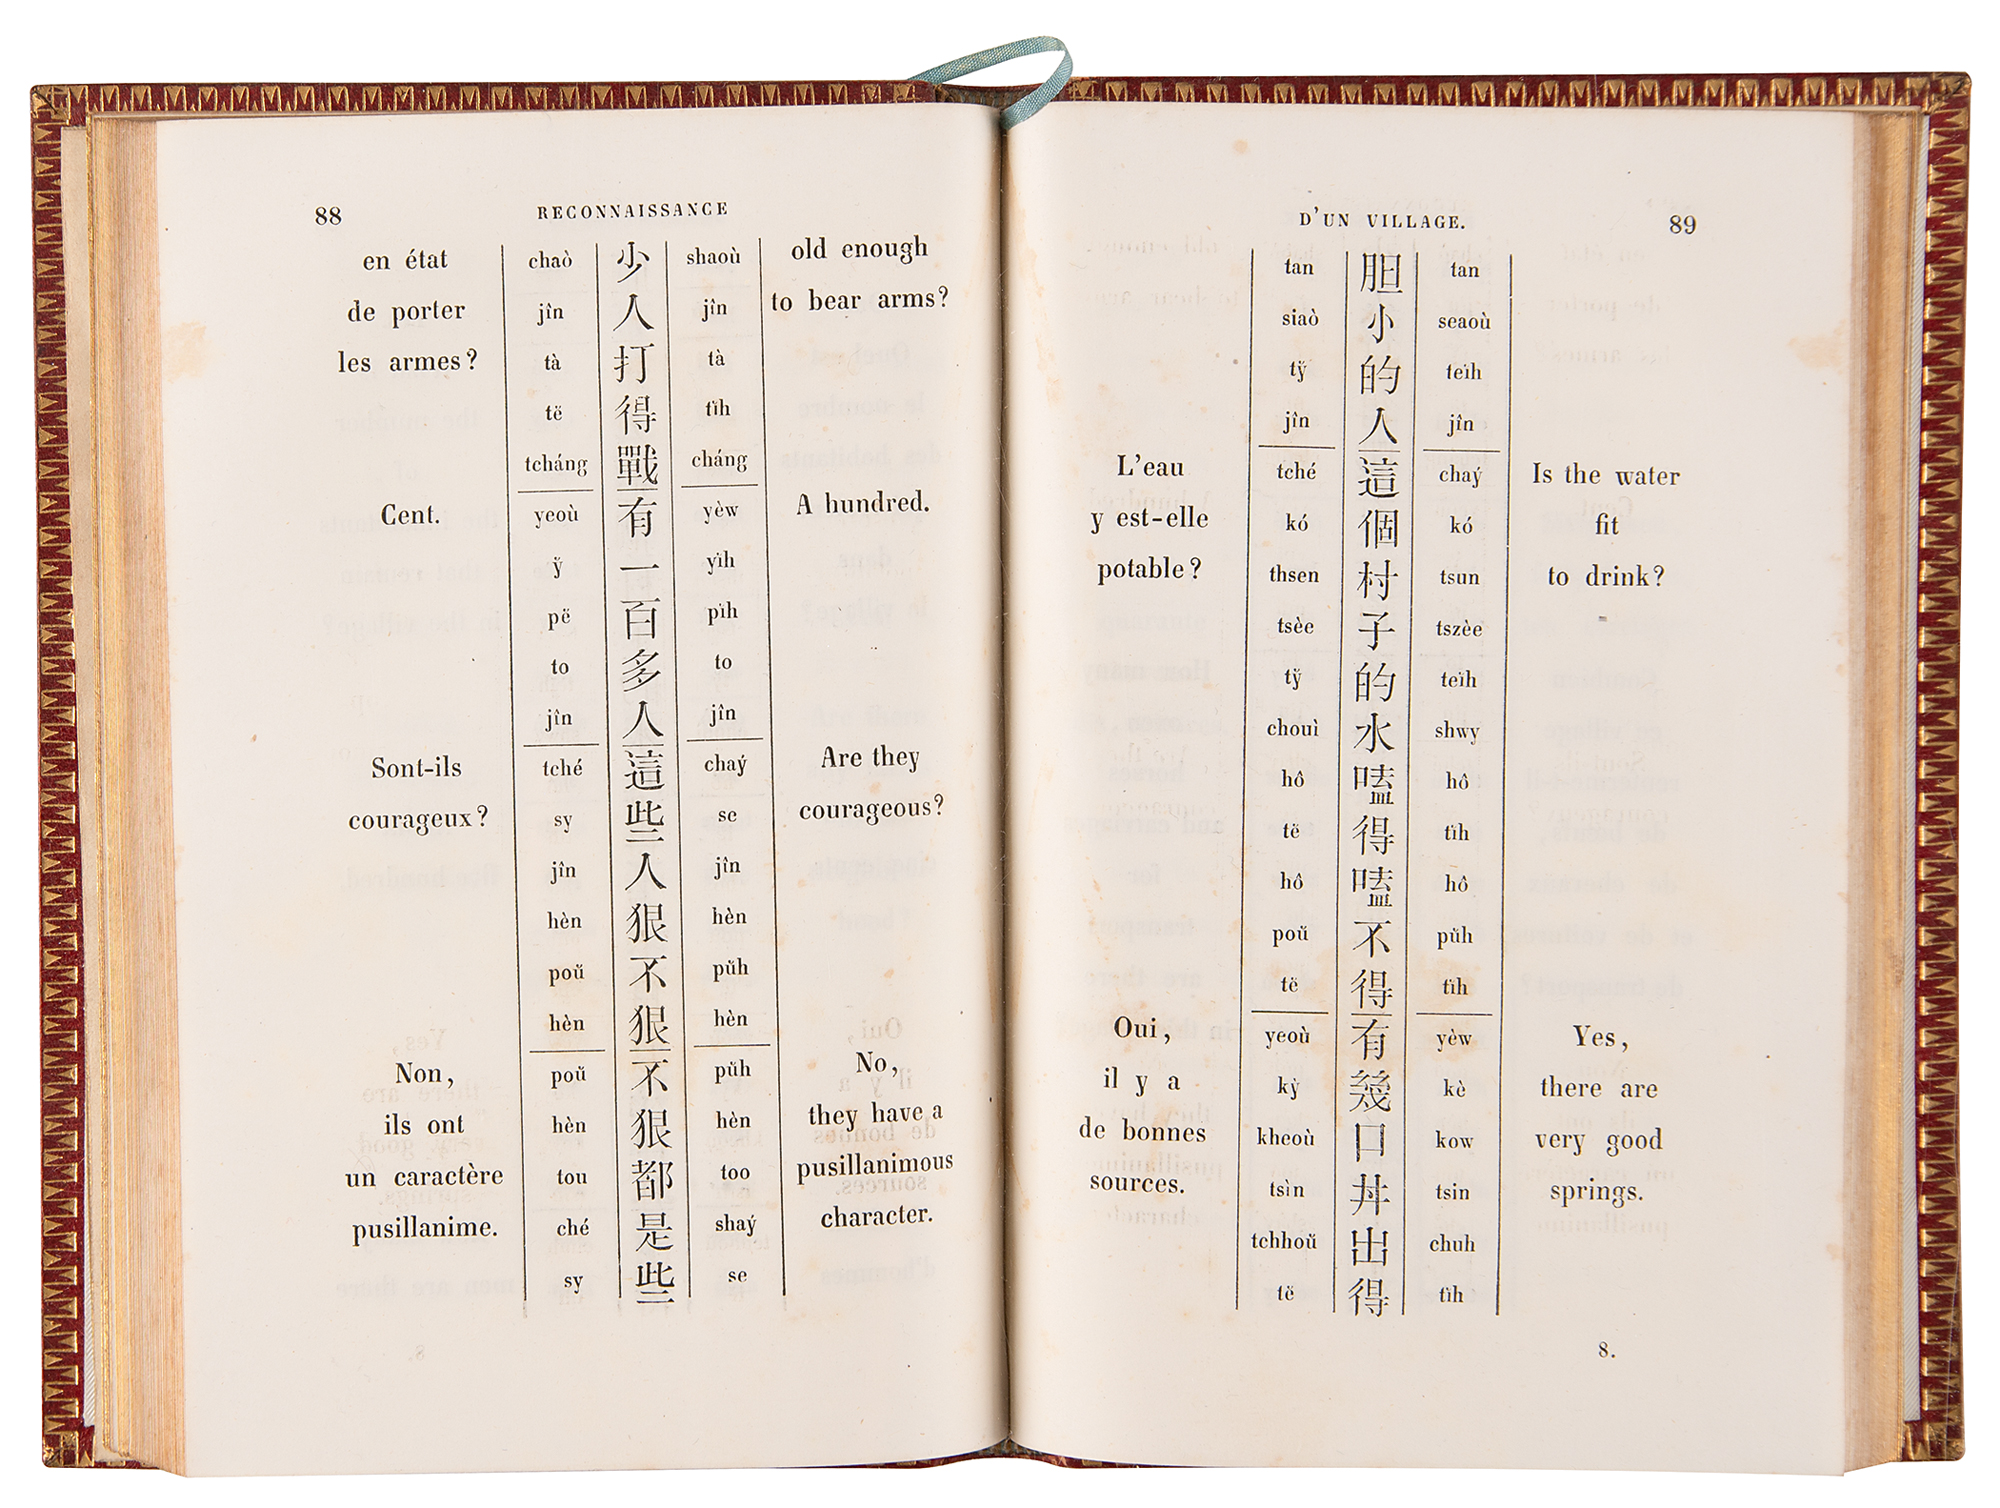 88 RECONNAISSANCE
en état chaò 少 shaoù old enough
de porter jîn 人 jîn to bear arms?
les armes? tà 打 tà
të 得 tïh
tcháng 戰 cháng
Cent. yeoù 有 yèw A hundred.
ÿ 一 yïh
pë 百 pïh
to 多 to
jîn 人 jîn
Sont-ils tché 這 chaý Are they
courageux? sy 些 se courageous?
jîn 人 jîn
hèn 狠 hèn
poŭ 不 pŭh
hèn 狠 hèn
Non, poŭ 不 pŭh No,
ils ont hèn 狠 hèn they have a
un caractère tou 都 too pusillanimous
pusillanime. ché 是 shaý character.
sy 些 se
D'UN VILLAGE. 89
tan 胆 tan
siaò 小 seaoù
tÿ 的 teïh
jîn 人 jîn
L'eau tché 這 chaý Is the water
y est-elle kó 個 kó fit
potable? thsen 村 tsun to drink?
tsèe 子 tszèe
tÿ 的 teïh
chouì 水 shwy
hô 嗑 hô
të 得 tïh
hô 嗑 hô
poŭ 不 pŭh
të 得 tïh
Oui, yeoù 有 yèw Yes,
il y a kỳ 幾 kè there are
de bonnes kheoù 口 kow very good
sources. tsìn 丼 tsin springs.
tchhoŭ 出 chuh
të 得 tïh
8.